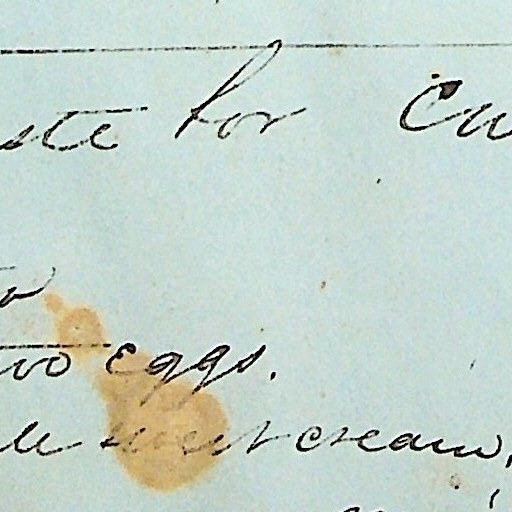 ste for Cu
to
two eggs.
sweet cream,